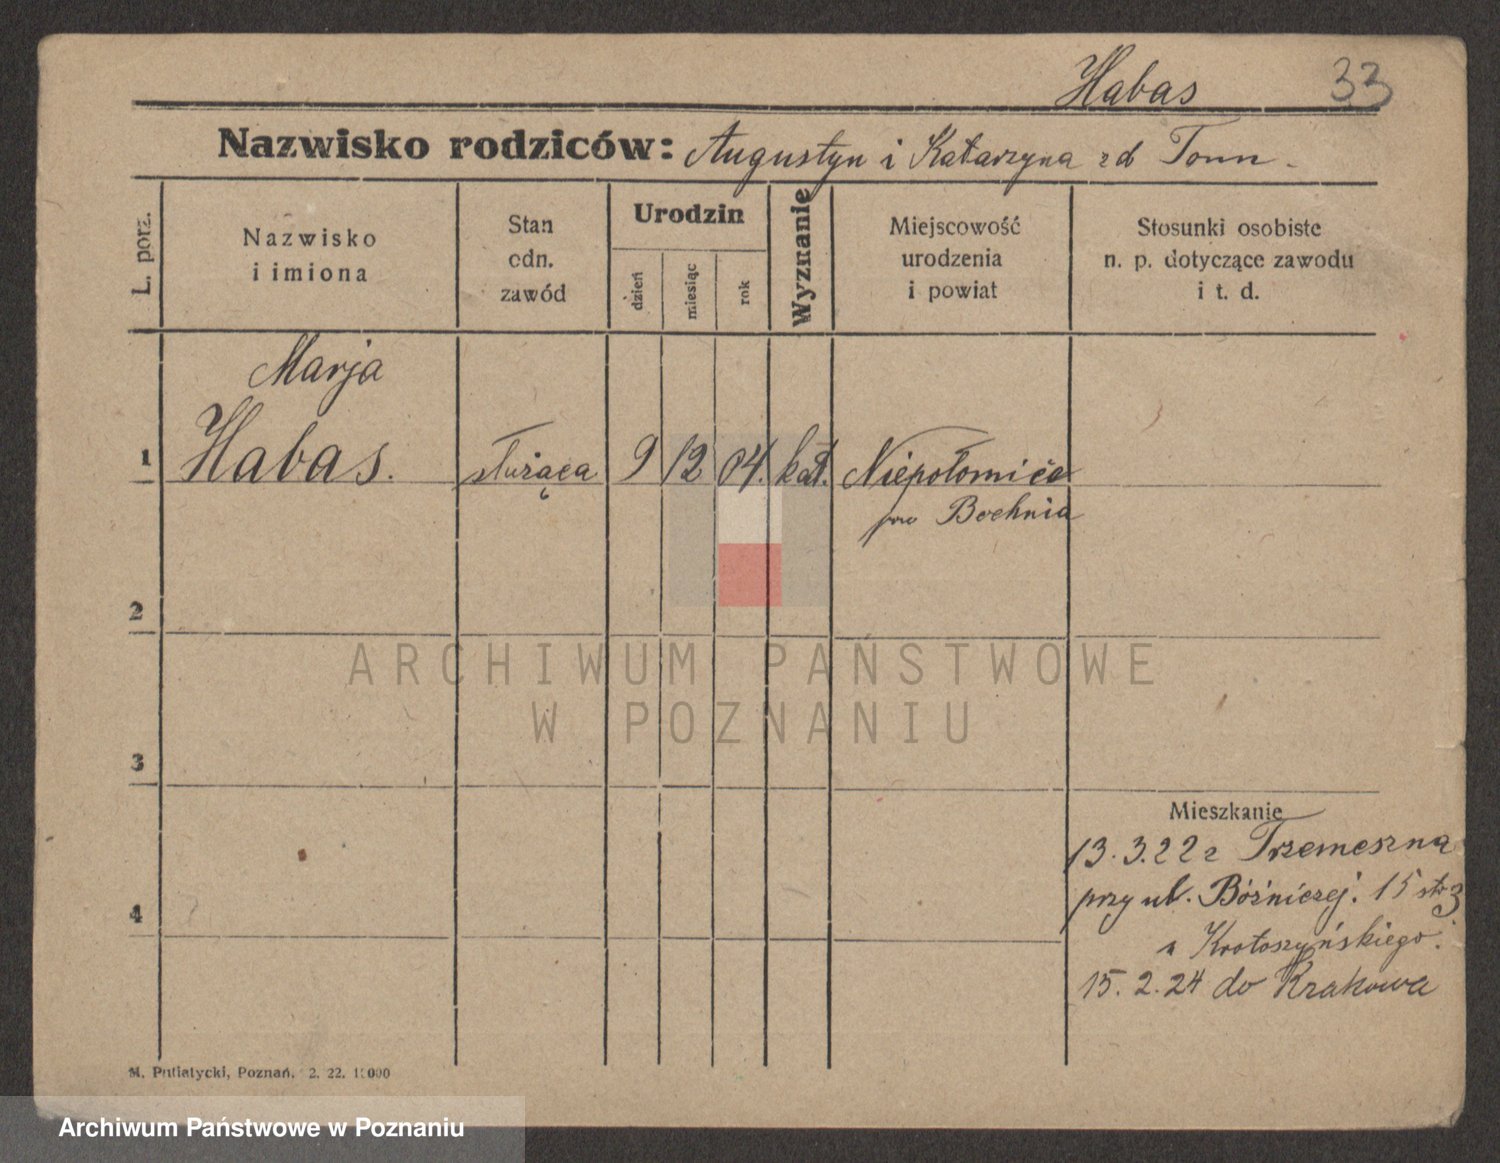 Habas 33
Nazwisko rodziców: Augustyn i Katarzyna zd Tonn -
L. porz.
Nazwisko
i imiona
Stan
odn.
zawód
Urodzin
dzień
miesiąc
rok
Wyznanie
Miejscowość
urodzenia
i powiat
Stosunki osobiste
n. p. dotyczące zawodu
i t. d.
Marja
1 Habas. służąca 9 12 04. kat. Niepołomice
pow Bochnia
2
ARCHIWUM PAŃSTWOWE
W POZNANIU
3
Mieszkanie
13.3.22 z Trzemeszna
przy ul. Bóżniczej. 15 str 3
u Krotoszyńskiego.
4
15.2.24 do Krakowa
M. Putiatycki, Poznań. 2. 22. 1000
Archiwum Państwowe w Poznaniu